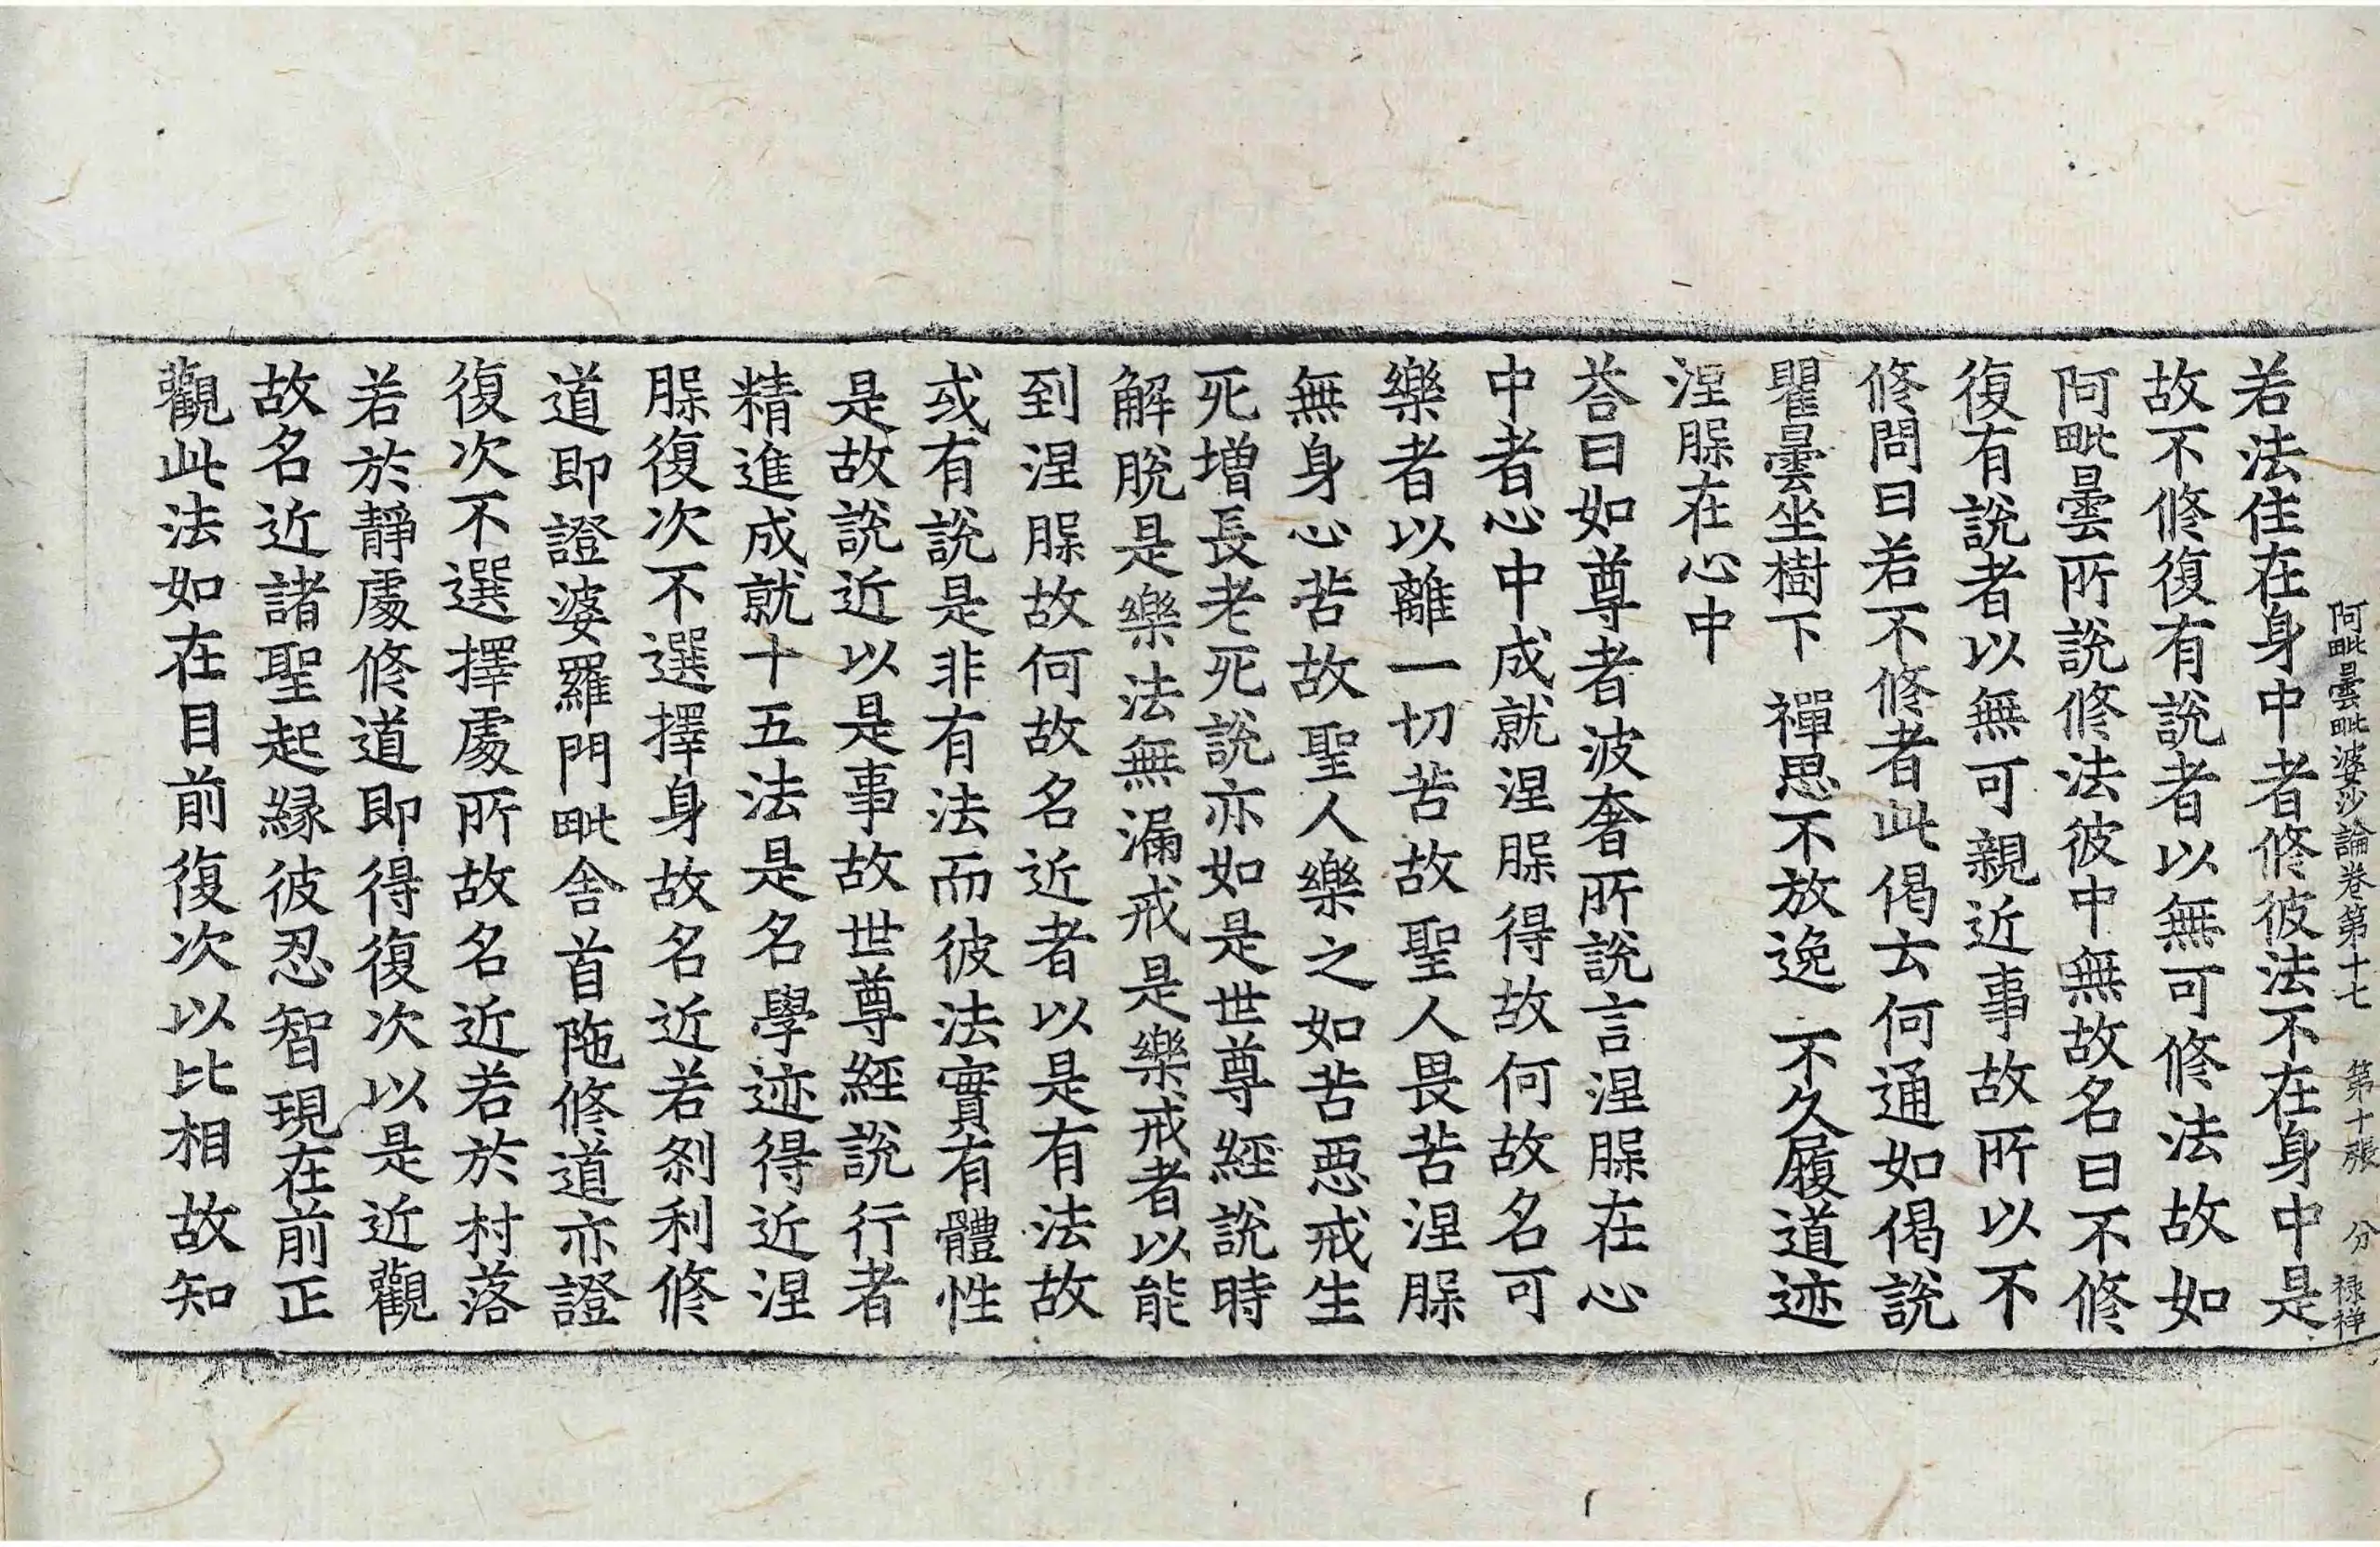 阿毗曇毗婆沙論卷第十七　第十張　分　祿祥
若法住在身中者修彼法不在身中是
故不修復有說者以無可修法故如
阿毗曇所說修法彼中無故名曰不修
復有說者以無可親近事故所以不
修問曰若不修者此偈云何通如偈說
瞿曇坐樹下　禪思不放逸　不久履道迹
涅槃在心中
荅曰如尊者波奢所說言涅槃在心
中者心中成就涅槃得故何故名可
樂者以離一切苦故聖人畏苦涅槃
無身心苦故聖人樂之如苦惡戒生
死增長老死說亦如是世尊經說時
解脫是樂法無漏戒是樂戒者以能
到涅槃故何故名近者以是有法故
或有說是非有法而彼法實有體性
是故說近以是事故世尊經說行者
精進成就十五法是名學迹得近涅
槃復次不選擇身故名近若剎利修
道即證婆羅門毗舍首陁修道亦證
復次不選擇處所故名近若於村落
若於靜處修道即得復次以是近觀
故名近諸聖起緣彼忍智現在前正
觀此法如在目前復次以比相故知